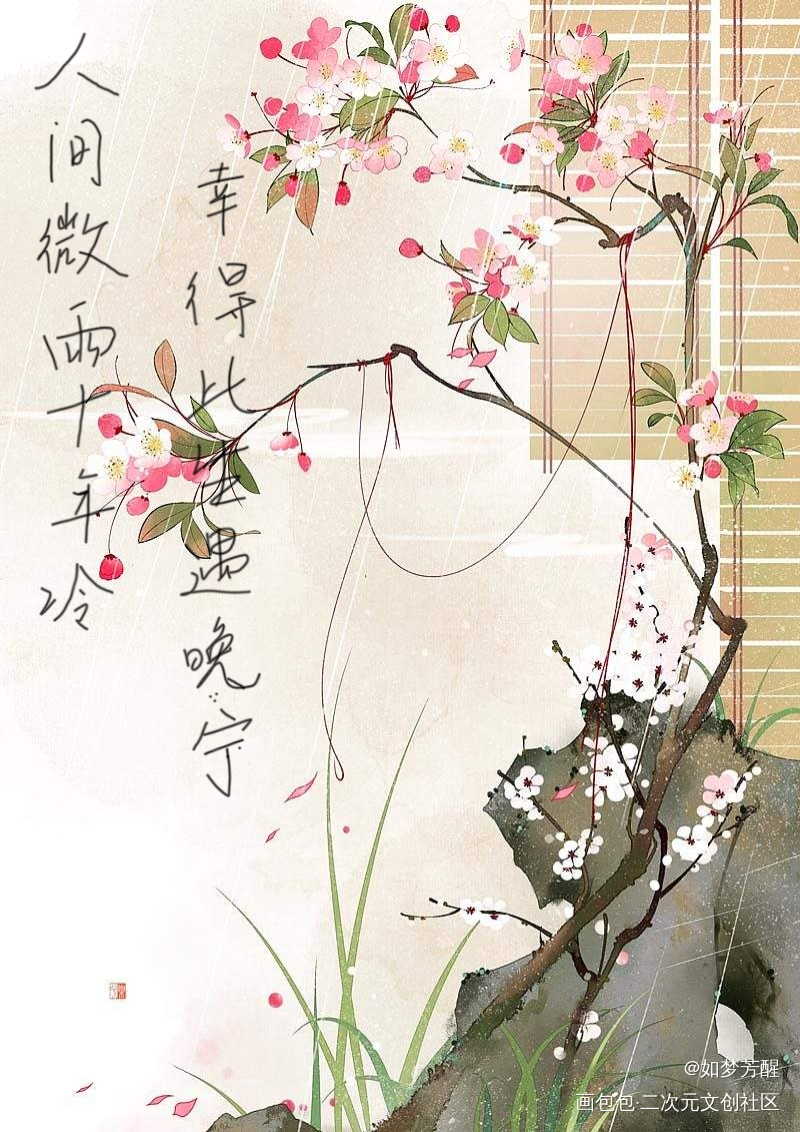 人间微雨十年冷
幸得此生遇晚宁
@如梦芳醒
画包包·二次元文创社区